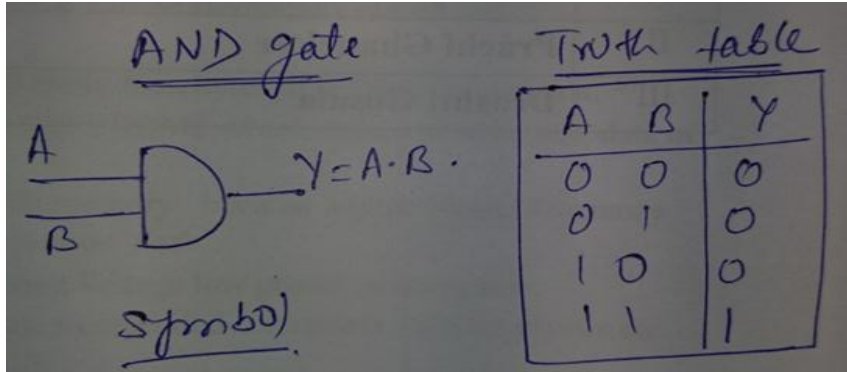 AND gate
A
B
Y = A·B.
Symbol
Truth table
A B Y
0 0 0
0 1 0
1 0 0
1 1 1